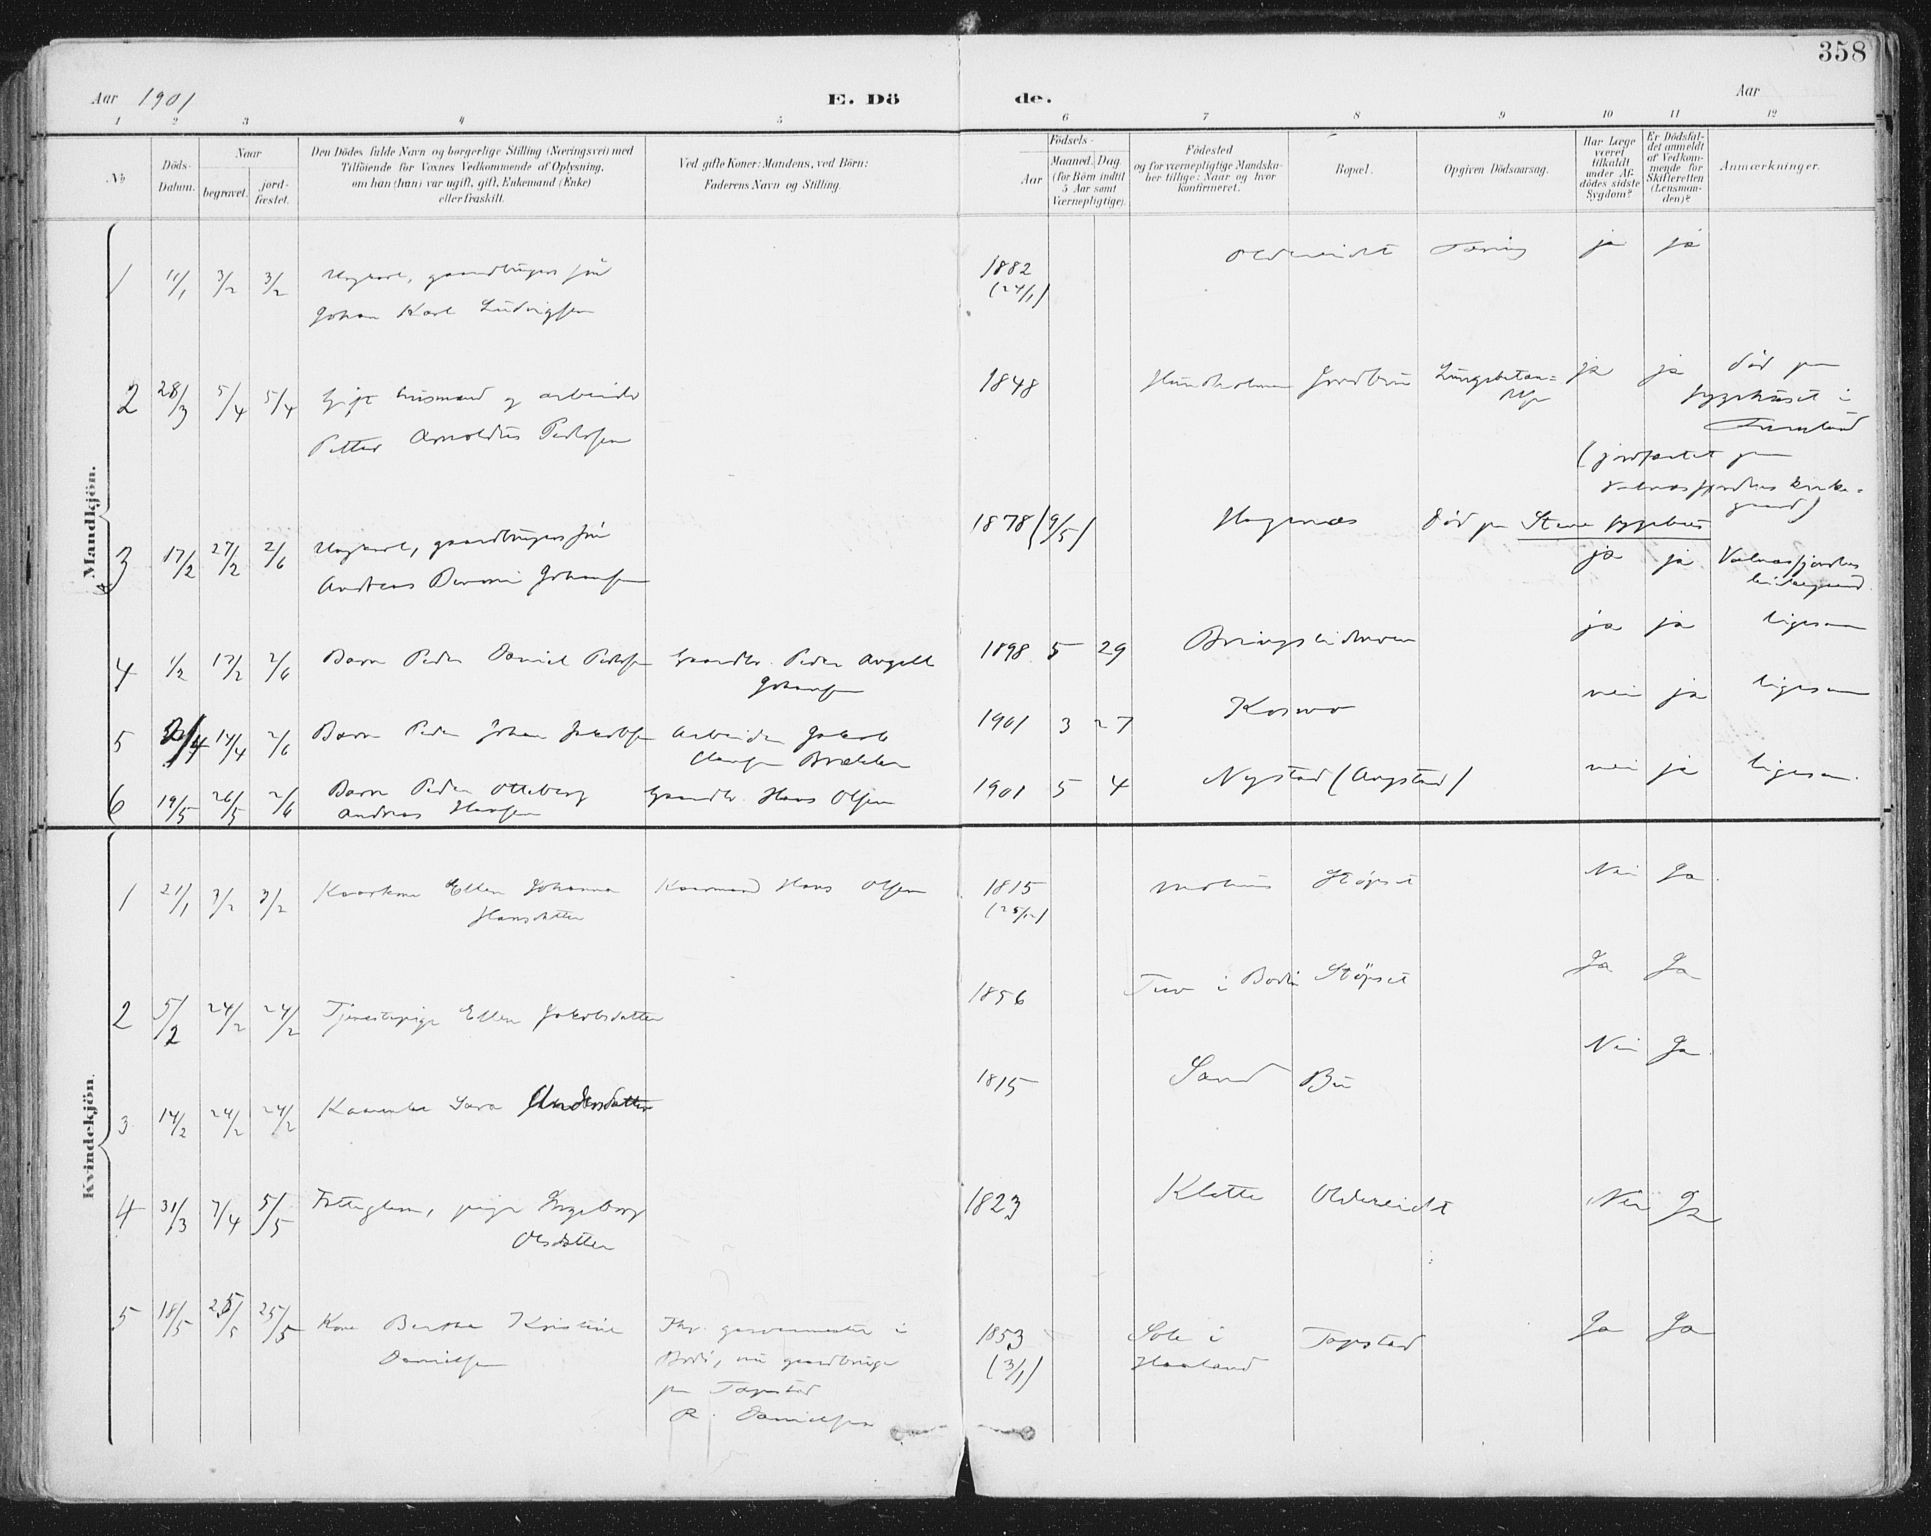 358
Aar 1901
E. Dö de.
Aar
1 2 3 4 5 6 7 8 9 10 11 12
No
Döds-Datum.
Naar
begravet.
jord-fæstet.
Den Dödes fulde Navn og borgerlige Stilling (Næringsvei) med
Tilföiende for Voxnes Vedkommende af Oplysning,
om han (hun) var ugift, gift, Enkemand (Enke)
eller fraskilt.
Ved gifte Koner: Mandens, ved Börn:
Faderens Navn og Stilling.
Födsels-
Aar
Maaned. Dag.
(for Börn indtil
5 Aar samt
Værnepligtige).
Födested
og for værnepligtige Mandska-
ber tillige: Naar og hvor
konfirmeret.
Bopæl.
Opgiven Dödsaarsag.
Har Læge
været
tilkaldt
under Af-
dödes sidste
Sygdom?
Er Dödsfal-
det anmeldt
af Vedkom-
mende for
Skifteretten
(Lensman-
den)?
Anmærkninger.
Mandkjön.
1 11/1 3/2 3/2 Ungkarl, gaardbrugers søn 1882 Oldereidet Tæring ja ja
Johan Karl Ludvigsen (24/1)
2 28/3 5/4 5/4 Gift husmand og arbeider 1848 ja ja død paa
Petter Arnoldus Pedersen sygehuset i
(jordfæstet paa
Valnesfjordens kirke-
gaard)
3 17/2 27/2 2/6 Ungkarl, gaardbrugers søn 1878 (9/5) Hagenæs Død paa sygehus
Andreas Johansen ja ja Valnesfjordens
kirkegaard
4 1/2 17/2 2/6 Barn Peder Daniel Pedersen Gaardbr. Peder Angell 1898 5 29 ja ja ligesaa
Johansen
5 2/4 14/4 2/6 Barn Peder Johan Jakobsen Arbeider Jakob 1901 3 27 Kosmo nei ja ligesaa
6 19/5 26/5 2/6 Barn Peder Otteberg Gaardbr. Hans Olsen 1901 5 4 Nystad nei ja ligesaa
Andreas Hansen
Kvindekjön.
1 21/1 3/2 3/2 Kaarkone Ellen Johanna Kaarmand Hans Olsen 1815 Støpset Nei Ja
Hansdatter (25/12)
2 5/2 24/2 24/2 Tjenestepige Ellen Jakobsdatter 1856 Tuv i Bodin Støpset Ja Ja
3 14/2 24/2 24/2 Kaarenke Sara Andersdatter 1815 Sand Bu Nei Ja
4 31/3 7/4 5/5 Fattiglem, pige Ingeborg 1823 Kletten Oldereidet Nei Ja
Olsdatter
5 18/5 25/5 25/5 Kone Berthe Kristine Fhv. garvermester i 1853 Sole i Tapstad Ja Ja
Danielsen Bodø, nu gaardbruger (3/1) Haaland
paa Tapstad
R. Danielsen